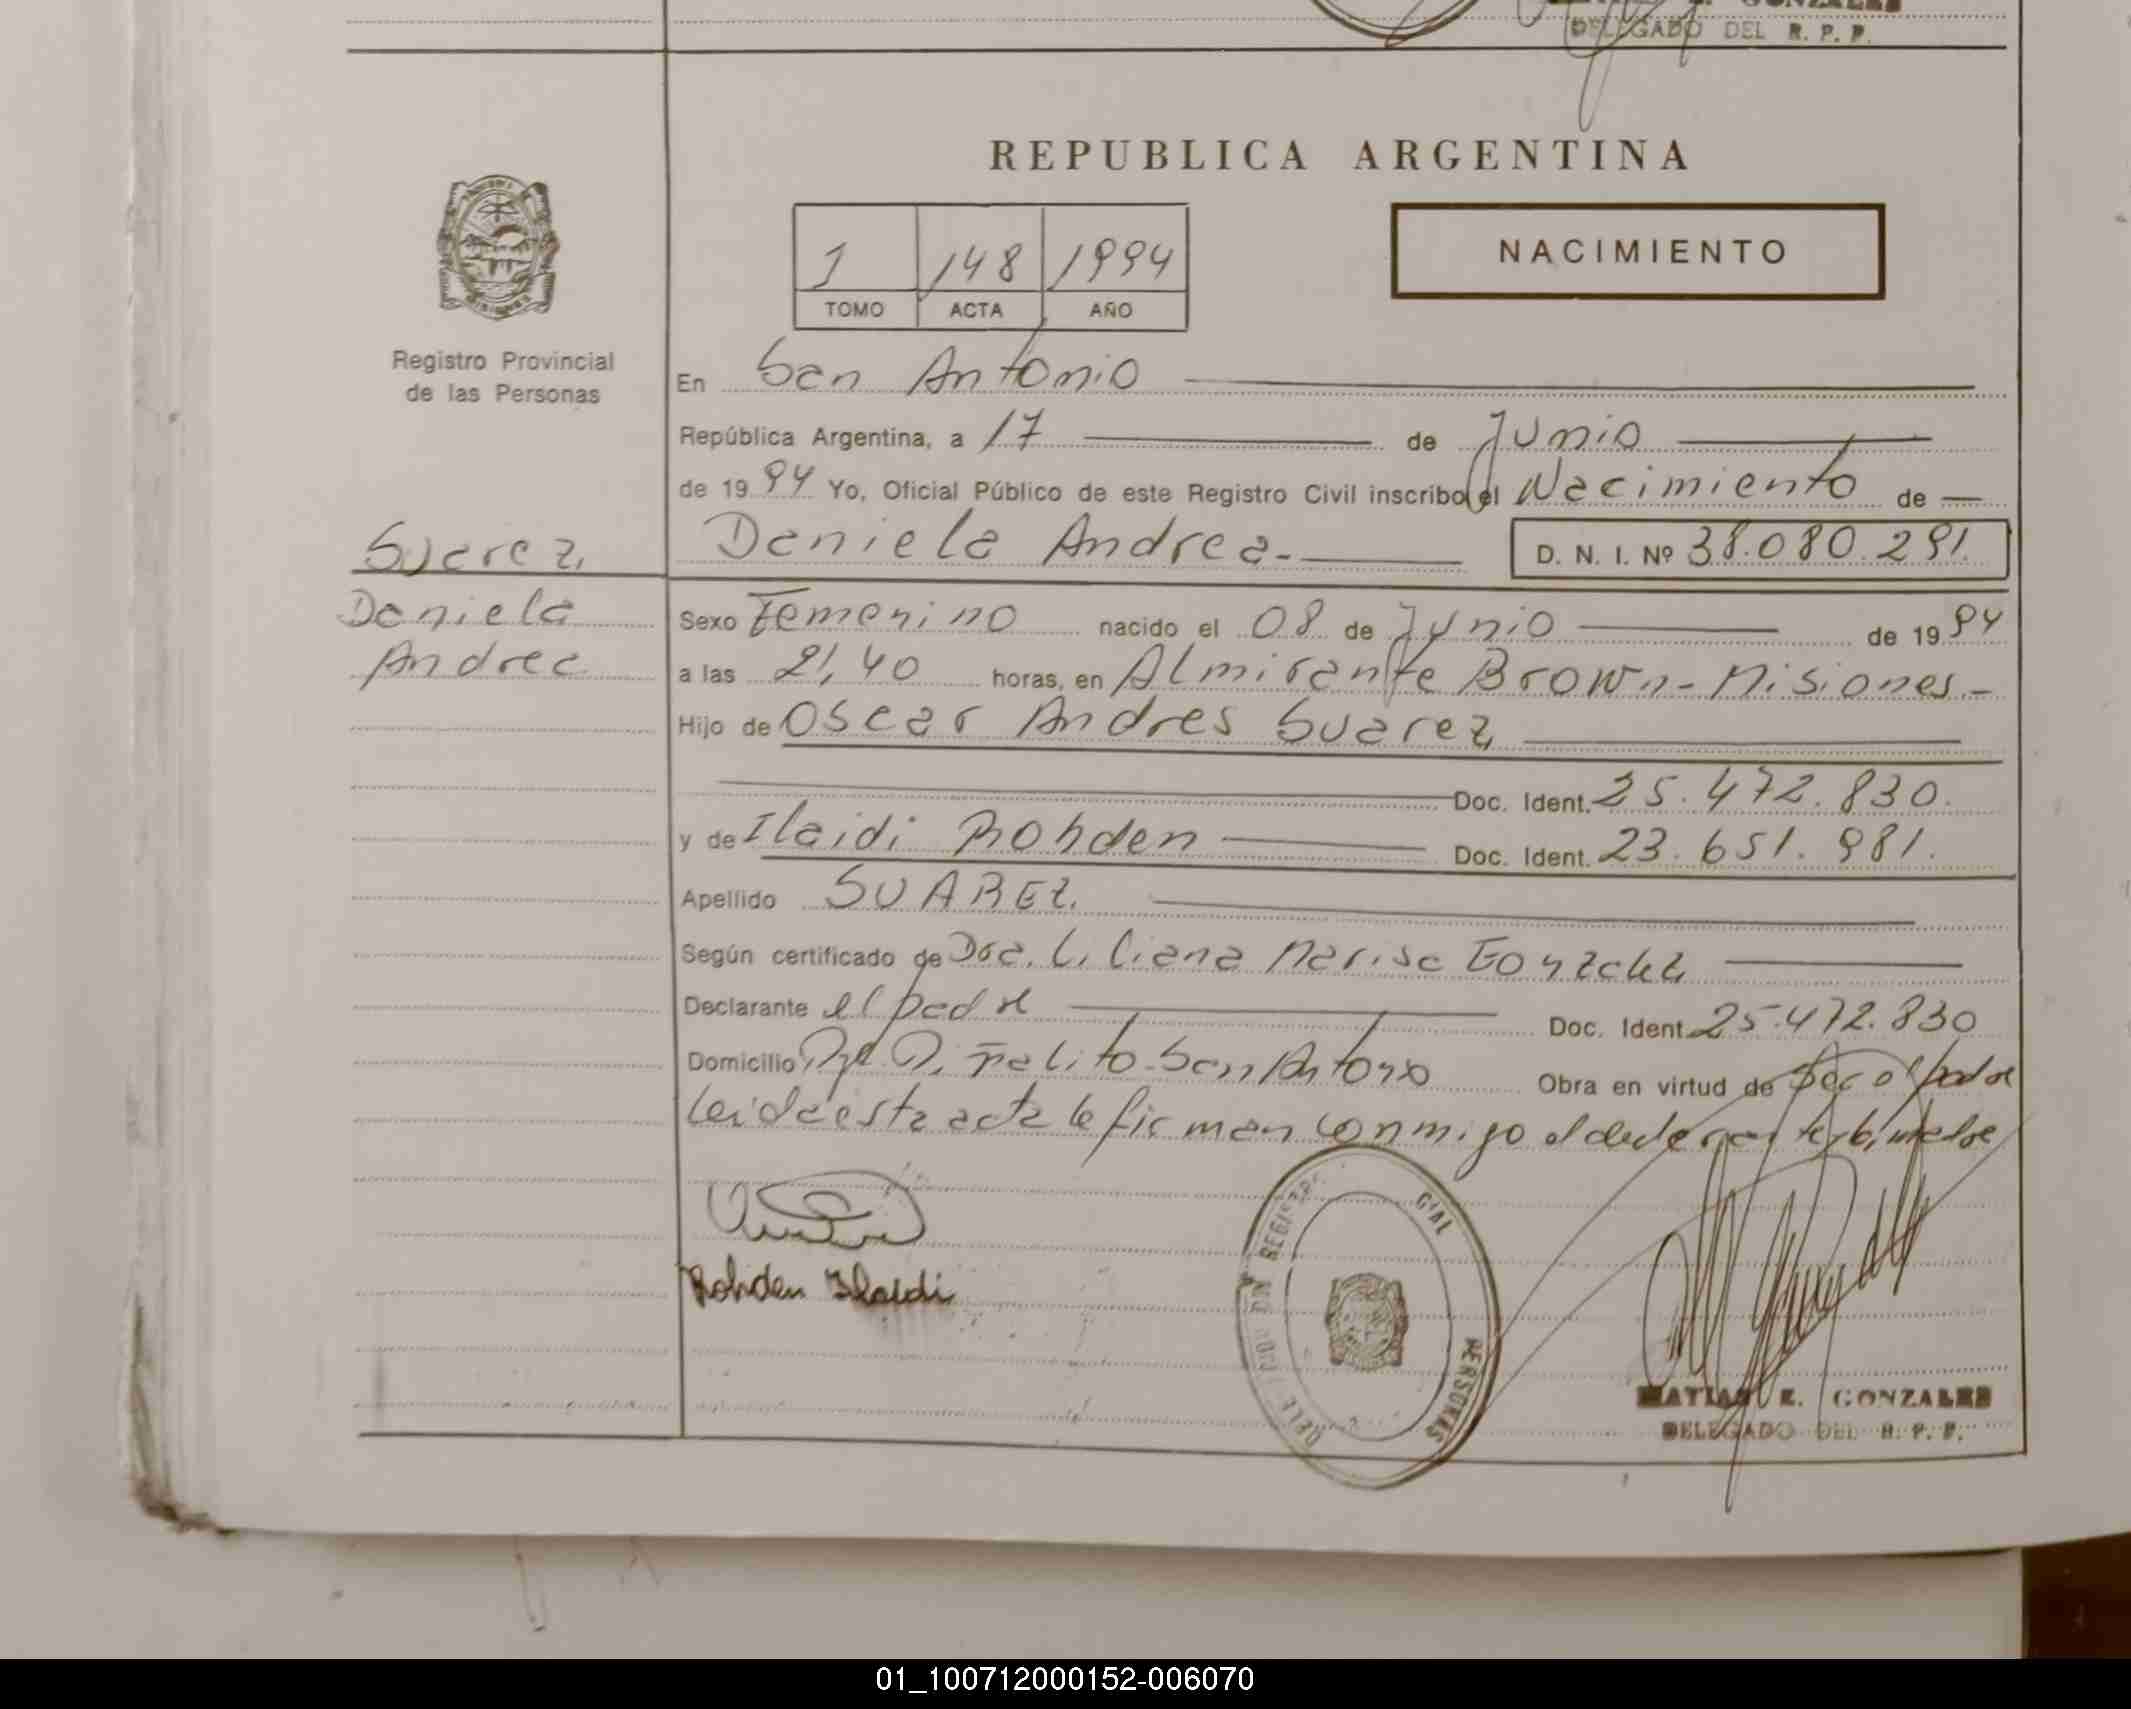 DELEGADO DEL R. P. P.
REPUBLICA ARGENTINA
1 148 1994
NACIMIENTO
TOMO ACTA AÑO
Registro Provincial
de las Personas
En San Antonio
República Argentina, a 17 de Junio
de 1994 Yo, Oficial Público de este Registro Civil inscribo el Nacimiento de
Suarez, Daniela Andrea.- D. N. I. Nº 38.080.291.
Daniela
Andrea
Sexo Femenino nacido el 08 de Junio de 1994
a las 21,40 horas, en Almirante Brown - Misiones.-
Hijo de Oscar Andres Suarez
Doc. Ident. 25.472.830.
y de Ilaidi Rohden Doc. Ident. 23.651.981.
Apellido SUAREZ.
Según certificado de Dra. Liliana Marisa Gonzalez
Declarante el padre Doc. Ident. 25.472.830
Domicilio San Antonio Obra en virtud de
Leida esta acta la firman conmigo
Rohden Ilaidi
PERSONAS
MATIAS E. GONZALES
DELEGADO DEL R. P. P.
01_100712000152-006070